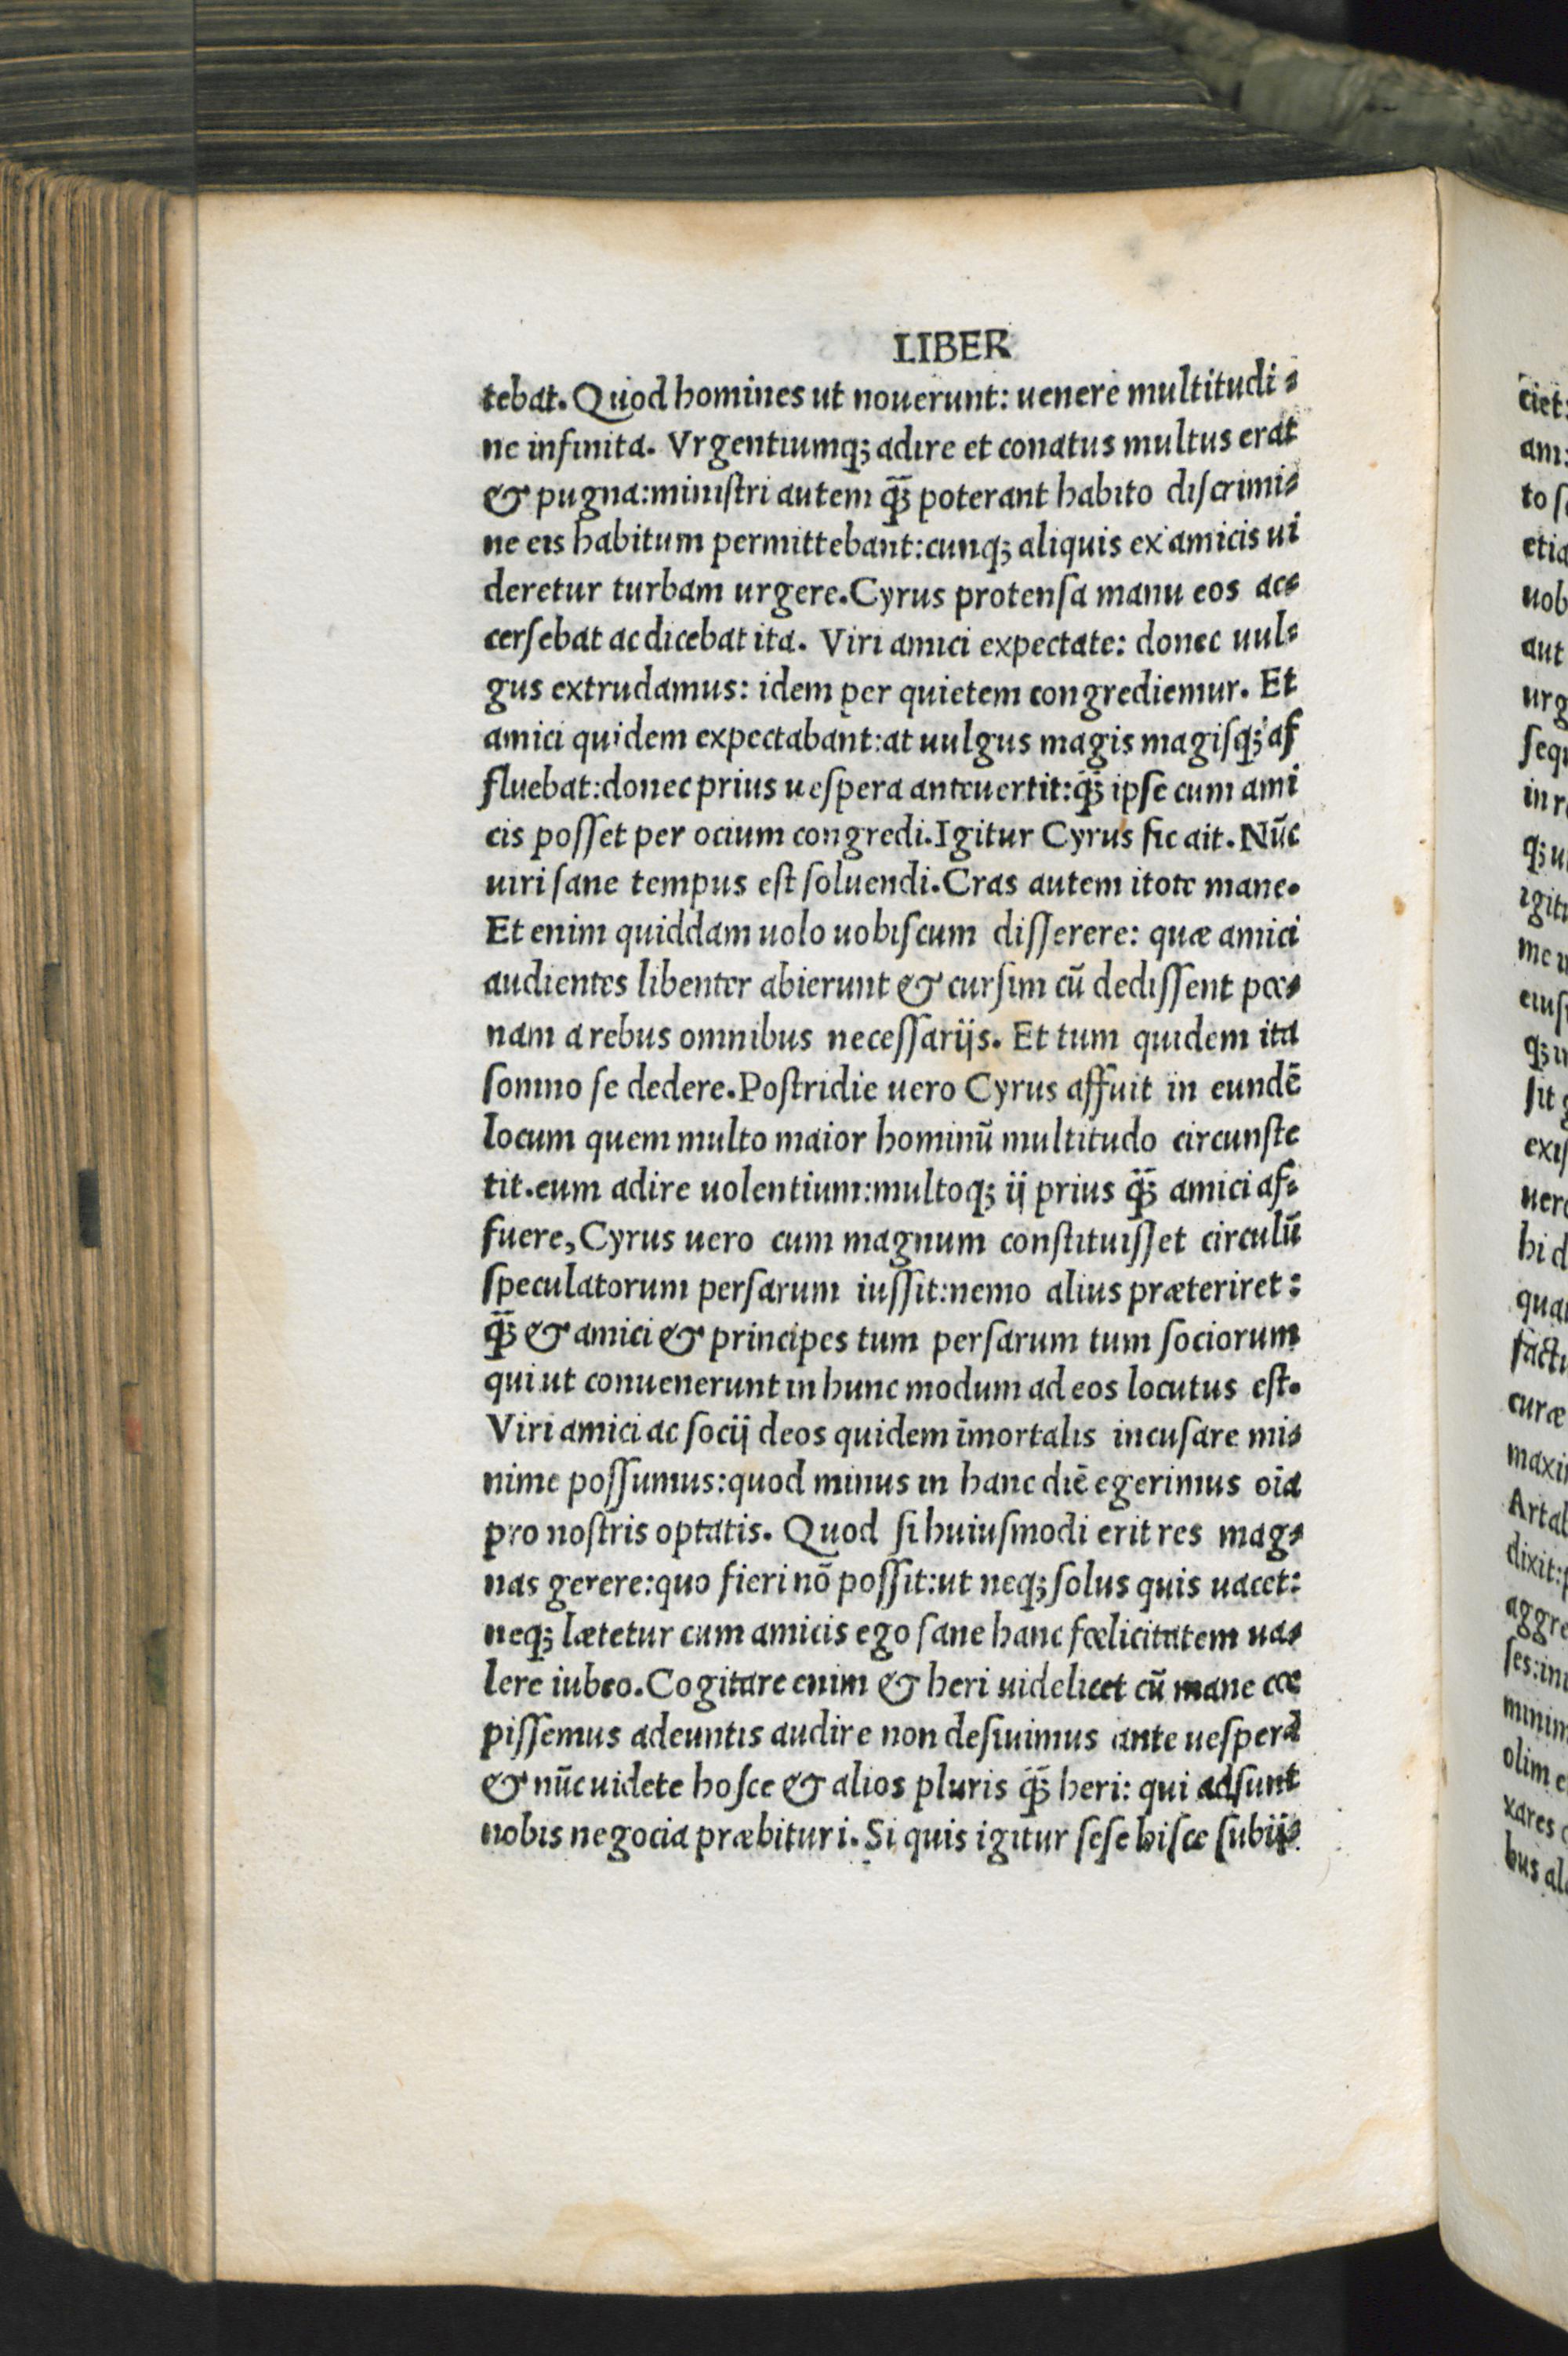 LIBER
tebat. Quod homines ut nouerunt: uenere multitudi⸗
ne infinita. Vrgentiumq; adire et conatus multus erat
& pugna: miniſtri autem q̃ꝫ poterant habito diſcrimi⸗
ne eis habitum permittebant: cunq; aliquis ex amicis ui
deretur turbam urgere. Cyrus protenſa manu eos ac⸗
cerſebat ac dicebat ita. Viri amici expectate: donec uul⸗
gus extrudamus: idem per quietem congrediemur. Et
amici quidem expectabant: at uulgus magis magiſq; af
fluebat: donec prius ueſpera anteuertit: q̃ꝫ ipſe cum ami
cis poſſet per ocium congredi. Igitur Cyrus ſic ait. Nūc
uiri ſane tempus eſt ſoluendi. Cras autem itote mane.
Et enim quiddam uolo uobiſcum diſſerere: quæ amici
audientes libenter abierunt & curſim cū dediſſent pœ⸗
nam a rebus omnibus neceſſarijs. Et tum quidem ita
ſomno ſe dedere. Poſtridie uero Cyrus affuit in eundē
locum quem multo maior hominū multitudo circunſte
tit. eum adire uolentium: multoq; ij prius q̃ꝫ amici af⸗
fuere, Cyrus uero cum magnum conſtituiſſet circulū
ſpeculatorum perſarum iuſſit: nemo alius præteriret:
q̃ꝫ & amici & principes tum perſarum tum ſociorum
qui ut conuenerunt in hunc modum ad eos locutus eſt.
Viri amici ac ſocij deos quidem īmortalis incuſare mi⸗
nime poſſumus: quod minus in hanc diē egerimus oīa
pro noſtris optatis. Quod ſi huiuſmodi erit res mag⸗
nas gerere: quo fieri nō poſſit: ut neq; ſolus quis uacet:
neq; lætetur cum amicis ego ſane hanc fœlicitatem ua⸗
lere iubeo. Cogitare enim & heri uidelicet cū mane cœ
piſſemus adeuntis audire non deſiuimus ante ueſperā
& nūc uidete hoſce & alios pluris q̃ꝫ heri: qui adſunt
nobis negocia præbituri. Si quis igitur ſeſe hiſce ſubij⸗